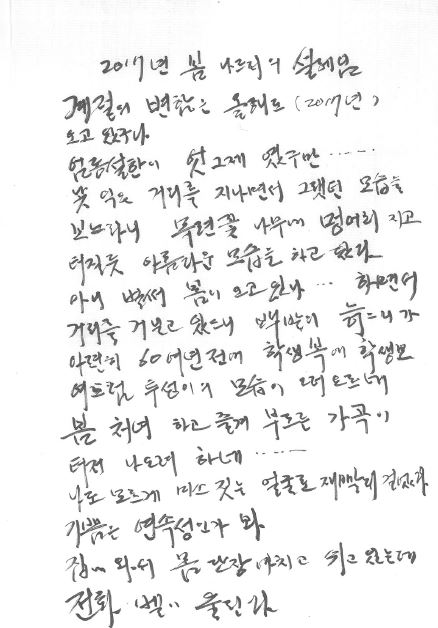 2017년 봄 나드리의 설레임
계절의 변함은 올해도 (2017년)
오고 있구나
엄동설한이 엇그제 였구만 .....
낯 익은 거리를 지나면서 그랬던 모습을
보노라니 목련꽃 나무에 멍어리 지고
터질듯 아름다운 모습을 하고 있다
아니 벌써 봄이 오고 있나 ... 하면서
거리를 거닐고 있으니 백발의 늙으니가
아련히 60여년전에 학생복에 학생모
여드럼 투성이의 모습이 떠오르네
봄 처녀 하고 즐겨 부르든 가곡이
터저 나오려 하네 .....
나도 모르게 미소 짓는 얼굴로 재빨리 걸었다
기쁨은 연속성인가 봐
집에 와서 몸 단장 마치고 쉬고 있는데
전화 벨이 울린다